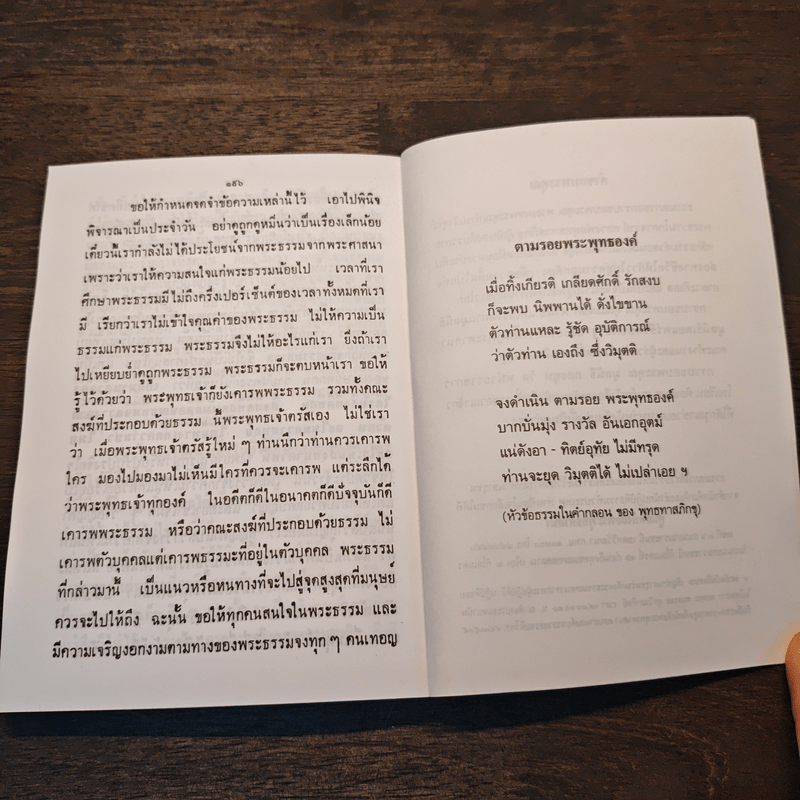 ๑๕๖
ขอให้กำหนดจดจำข้อความเหล่านี้ไว้ เอาไปพินิจ
พิจารณาเป็นประจำวัน อย่าดูถูกดูหมิ่นว่าเป็นเรื่องเล็กน้อย
เดี๋ยวนี้เรากำลังไม่ได้ประโยชน์จากพระธรรมจากพระศาสนา
เพราะว่าเราให้ความสนใจแก่พระธรรมน้อยไป เวลาที่เรา
ศึกษาพระธรรมมีไม่ถึงครึ่งเปอร์เซ็นต์ของเวลาทั้งหมดที่เรา
มี เรียกว่าเราไม่เข้าใจคุณค่าของพระธรรม ไม่ให้ความเป็น
ธรรมแก่พระธรรม พระธรรมจึงไม่ให้อะไรแก่เรา ยิ่งถ้าเรา
ไปเหยียบย่ำดูถูกพระธรรม พระธรรมก็จะตบหน้าเรา ขอให้
รู้ไว้ด้วยว่า พระพุทธเจ้าก็ยังเคารพพระธรรม รวมทั้งคณะ
สงฆ์ที่ประกอบด้วยธรรม นี้พระพุทธเจ้าตรัสเอง ไม่ใช่เรา
ว่า เมื่อพระพุทธเจ้าตรัสรู้ใหม่ ๆ ท่านนึกว่าท่านควรเคารพ
ใคร มองไปมองมาไม่เห็นมีใครที่ควรจะเคารพ แต่ระลึกได้
ว่าพระพุทธเจ้าทุกองค์ ในอดีตก็ดีในอนาคตก็ดีปัจจุบันก็ดี
เคารพพระธรรม หรือว่าคณะสงฆ์ที่ประกอบด้วยธรรม ไม่
เคารพตัวบุคคลแต่เคารพธรรมะที่อยู่ในตัวบุคคล พระธรรม
ที่กล่าวมานี้ เป็นแนวหรือหนทางที่จะไปสู่จุดสูงสุดที่มนุษย์
ควรจะไปให้ถึง ฉะนั้น ขอให้ทุกคนสนใจในพระธรรม และ
มีความเจริญงอกงามตามทางของพระธรรมจงทุก ๆ คนเทอญ
ตามรอยพระพุทธองค์
เมื่อทิ้งเกียรติ เกลียดศักดิ์ รักสงบ
ก็จะพบ นิพพานได้ ดั่งไขขาน
ตัวท่านแหละ รู้ชัด อุบัติการณ์
ว่าตัวท่าน เองถึง ซึ่งวิมุตติ
จงดำเนิน ตามรอย พระพุทธองค์
บากบั่นมุ่ง รางวัล อันเอกอุตม์
แน่ดังอา - ทิตย์อุทัย ไม่มีทรุด
ท่านจะยุด วิมุตติได้ ไม่เปล่าเอย ฯ
(หัวข้อธรรมในคำกลอน ของ พุทธทาสภิกขุ)